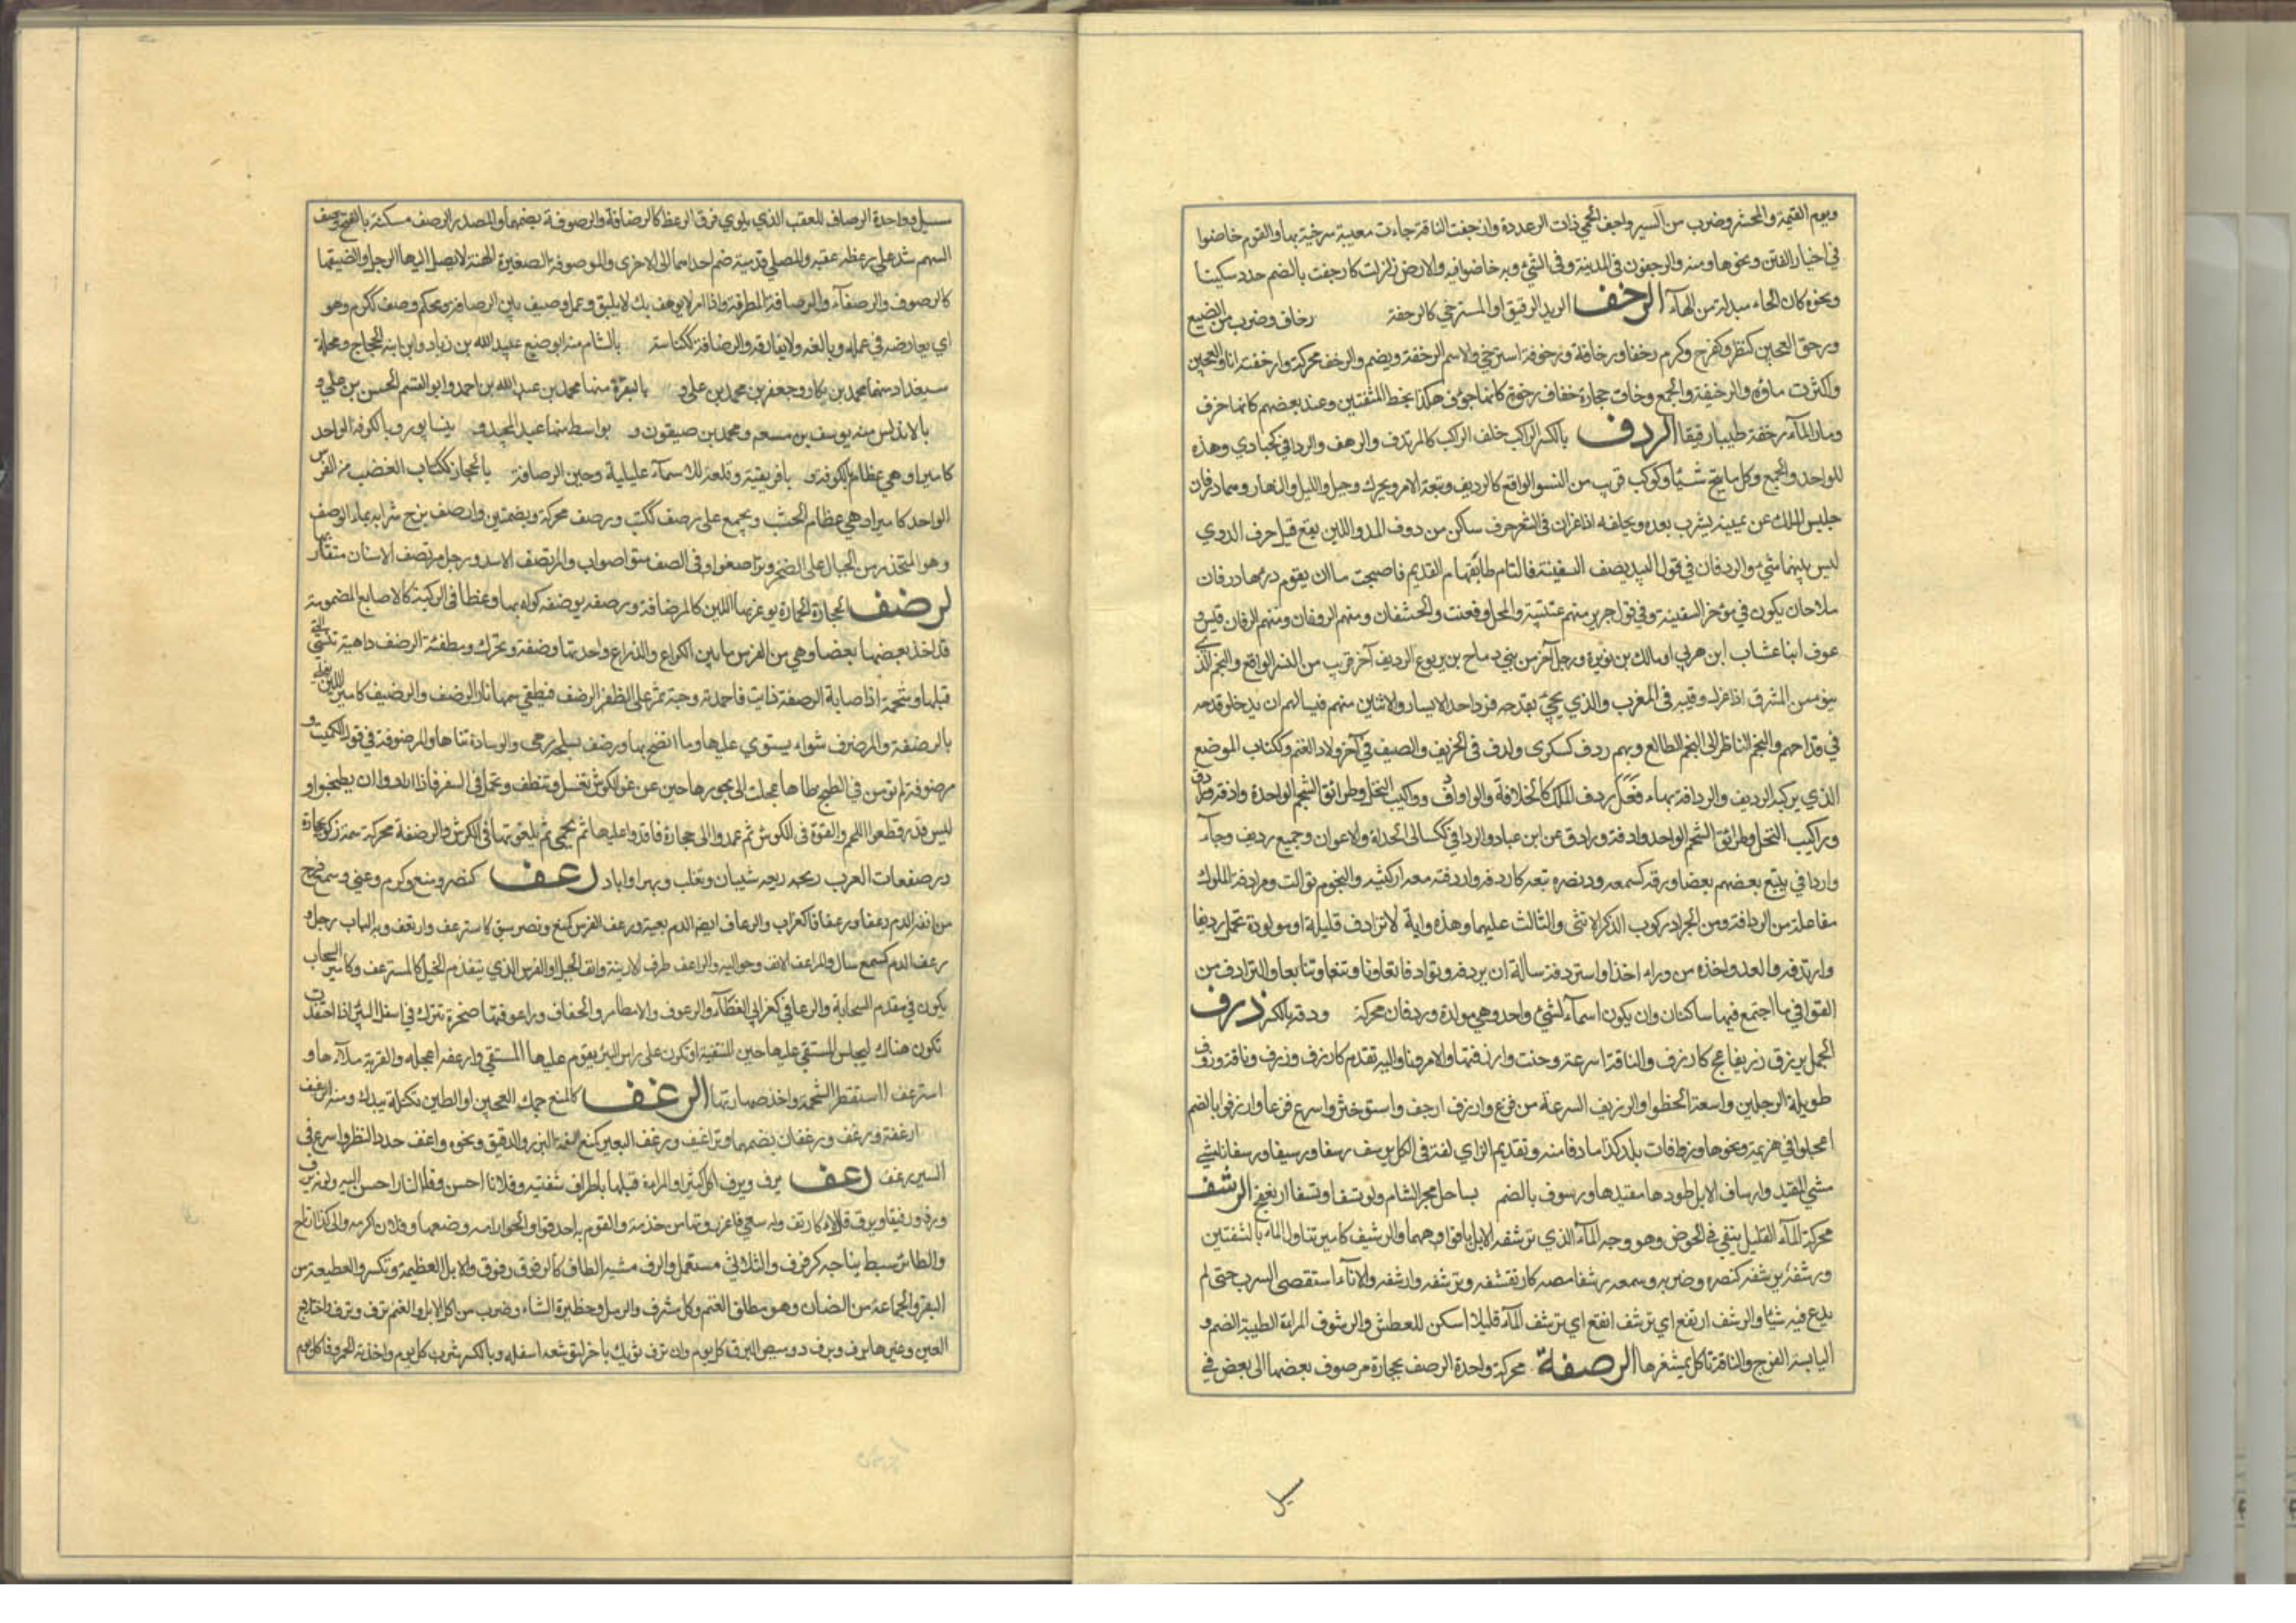 ويوم القيمة والمحشر وضرب من السير واجف الحمي ذات الرعدة وارجفت الناقة جاءت معيية مسرخية بها والقوم خاضوا
في اخبار الفتن ونحوها ومنه والمرجفون في المدينة وفي الشئ وبه خاضوا فيه والارض زلزلت كارجفت بالضم
ونحوه كان الحاء مبدلة من الهاء الرخف الزبد الرقيق او المسترخي كالرخفة رخاف وضرب من الصبغ
ورخف العجين كنصر وكفرح وكرم رخفا ورخافة ورخوفة استرخي والاسم الرخفة ويضم والرخف محركة وارخفته انا والعجين
واكثرت ماؤه والرخيفة والجمع وخاف حجارة خفاف رخوة كانها جوف هكذا بخط المتقنين وعند بعضهم كانها خزف
وصار الماء رخفة طينا رقيقا الردف بالكسر الراكب خلف الراكب كالمرتدف والردافي كحبادي وهذه
للواحد والجمع وكل ما تبع شيأ وكوكب قريب من النسر الواقع كالرديف وتبعة الامر ويحرك وجبل والليل والنهار وهما ردفان
جليس الملك عن يمينه يشرب بعده ويخلفه اذا غزان في الشعر حرف ساكن من حروف المد واللين يقع قبل حرف الروي
ليس بينهما شئ والردفان في قول لبيد يصف السفينة فالتام طائقها القديم فاصبحت ما ان يقوم درءها ردفان
ملاحان يكون في مؤخر السفينة وفي قول جرير منهم عتيبة والمحل وقعنت والحنشفان ومنهم الردفان قيس و
عوف ابنا عتاب ابن هرمي او مالك بن نويرة ورجل آخر من بني رماح بن يربوع الرديف آخر قريب من النسر الواقع والنجم الذي
ينو من المشرق اذا غرب رقيبه في المغرب والذي يجئ بقدحه فزدا احد الايسار والاثنين منهم فيسالهم ان يدخلوا قدحه
في قداحهم والنجم الناظر الى النجم الطالع وبهم ردف كسكرى ولدف في الخريف والصيف في آخر ولاد الغنم وككتاب الموضع
الذي يركبه الرديف والردافة بهاء فعل ردف الملك كالخلافة والروادف رواكيب النخل وطرائق الشحم الواحدة رادفة
وراكيب النخل وطرائق الشحم الواحد رادفة ورادف عن ابن عباد والردافي ككسالى الحداة والاعوان وجمع رديف وجاء
واردافي يتبع بعضهم بعضا وردفه كسمعه ونصره تبعه كاردفه واردفته معه اركبته والنجوم توالت ومرادفة الملوك
مفاعلة من الردافة ومن الجراد ركوب الذكر الانثى والثالث عليهما وهذه دابة لا ترادف قليلة او مولودة تحمل رديفا
وارتدفه والعدو اخذه من وراء اخذا واستردفه سأله ان يردفه وترادفا تعاونا وتتابعا والمترادف من
القوافي ما اجتمع فيها ساكنان وان يكون اسماء لشئ واحد وهي مولدة وردفان محركة وردفة بالكسر زرف
الجمل يزرف زريفا عج كارزف والناقة اسرعت وحنت وارزفتها والامر دنا واليه تقدم كارزف وزرف وناقة رزوف
طويلة الرجلين واسعة الخطو والرزيف السرعة من فزع وارزف ارجف واستوحش واسرع فزعا وارزفوا بالضم
اعجلوا في هزيمة ونحوها ورزافات بلد كذا ما دنا منه وتقديم الزاي لغة في الكل يرسف رسفا ورسيفا ورسفانا مشي
مشي المقيد وارساف الابل طردها مقيدها ورسوف بالضم بساحل بحر الشام وارتسفا ارتفع الرشف
محركة الماء القليل يبقي في الحوض وهو وجه الماء الذي ترشفه الابل بافواهها والرشيف كامير تناول الماء بالشفتين
ورشفه يرشفه كنصره وضربه وسمعه رشفا مصه كارتشفه وترشفه وارشفه والاناء استقصى الشرب حتى لم
يدع فيه شيأ والرشف انقع اي ترشف الماء قليلا اسكن للعطش والرشوف المراة الطيبة الفم و
اليابسة الفرج والناقة تاكل بمشفرها الرصفة محركة واحدة الرصف بحجارة مرصوف بعضها الى بعض في
سيل
سسيل وواحدة الرصاف للعقب الذي يلوي فوق الرعظ كالرصافة والرصوفة بضمهما والمصدر الرصف مسكنة بالفتح ورصف
السهم شد على رعظه عقبه والمصلي قدميه ضم احداهما الى الاخرى والمرصوفة الصغيرة الهنة لا يصل اليها الرجل والضيقها
كالرصوف والرصفاء والرصافة المطرقة واذا امر لا يرصف بك لا يليق وعمل رصيف بين الرصافة ومحكم وصف ككرم وهو
اي يعارضه في عمله ويالفه ولا يفارقه والرصافة ككناسة بالشام منه ابو منيع عبيد الله بن زياد وابن ابنه الحجاج ومحلة
ببغداد منها محمد بن بكار وجعفر بن محمد بن علي و بالبصرة منها محمد بن عبد الله بن احمد وابو القسم الحسن بن علي و
بالاندلس منه يوسف بن مسعم ومحمد بن صيقون و بواسط منها عبد المجيد و بنيسابور وبالكوفة الواحد
كامير او هي عظام بالكوفة و بافريقية وقلعة لك سماء عليلية وحين الرصافة بالحجاز ككتاب الغضب من الفرس
الواحد كامير او هي عظام الجنب ويجمع على رصف ككتب ورصف محركة وبضمتين وارصف مزج شرابه بماء الرصف
وهو المتحدر من الجبال على الصخر وتراصفوا في الصف متواصواب والمرتصف الاسد ورجل مرتصف الاسنان متقاربها
لرضف الحجارة المحماة يوغر بها اللبن كالمرضافة ورضفه يرضفه كواه بها وعظام في الركبة كالاصابع المضمومة
قد اخذ بعضها بعضا وهي من الفرس ما بين الكراع والذراع واحدتها رضفة ويحرك ومطفئة الرضف داهية تنسي التي
قبلها وشحمة اذا اصابت الرضفة ذابت فاخمدته وحية تمر على الرضف فيطفئ سمها نار الرضف والرضيف كامير اللبن يغلي
بالرضفة والمرضوف شواء يستوي عليها وما انضج بها ورضف بسلحه رمى والوسادة ثناها والمرضوفة في قول الكميت و
مرضوفة لم تؤن في الطبخ طاهيا عجلت الى محورها حين غرغر الكرش تغسل وتنظف وتحمل في السفر فاذا ارادوا ان يطبخوا و
ليس قدر قطعوا اللحم والقوه في الكرش ثم عمدوا الى حجارة فاوقدوا عليها ثم يحمى ثم يلقونها في الكرش والرضفة محركة سمة تكوى بحجارة
ورضفات العرب ربيعة شيبان وتغلب وبهراء واياد رعف كنصر ومنع وكرم وعني وسمع خرج
من انفه الدم رعفا ورعفا كغراب والرعاف ايضا الدم بعينه ورعف الفرس كمنع ونصر سبق كاسترعف وارتعف وبه الباب رجل و
رعف الدم كسمع سال والمراعف الانف وحواليه والراعف طرف الارنبة وانف الجبل والفرس الذي يتقدم الخيل كالمسترعف وكامير السحاب
يكون في مقدم السحابة والرعافي كغرابي العطاء والرعوف والامطار والخفاف وراعوفتها صخرة تترك في اسفل البئر اذا احتفرت
تكون هناك ليجلس المستقي عليها حين التنقية او تكون على راس البئر يقوم عليها المستقي وارعفه اعجله والقربة ملأها و
استرعف استقطر الشحمة واخذ صهارتها الرغف كالمنع جمعك العجين او الطين تكتله بيدك ومنه الرغيف
ارغفة ورغف ورغفان بضمهما وتراغيف ورغف البعير كمنع لقمه البزر والدقيق ونحوه وارغف حدد النظر واسرع في
السير رغف رعف يرف ويرف اكل كثيرا والمراة قبلها باطراف شفتيه وفلانا احسن وقلنا لنار احسن اليه ولونه يرف
ورفيفا وبرق تلالا كارتف وله سعي فاعز وتهامن خدمة والقوم به احدقوا والحوار امه رضعها وفلانا اكرمه والى كذا ارتاح
والطائر بسط جناحيه كرفرف والثلاثي مستعمل والرف مشبه الطاق كالرفوف رفوف والابل العظيمة وتكسر والقطيعة من
البقر والجماعة من الضان وهو مطلق الغنم وكل مشرف والرسل وحظيرة الشاء وضرب من اكل الابل والغنم ترف وترف واختلاج
العين وغيرها يرف ويرف وبريص البرق كل يوم وان ترف ثوبك باخر لتوسعه اسفله وبالكسر شرب كل يوم واخذته الحمى رفا كل يوم